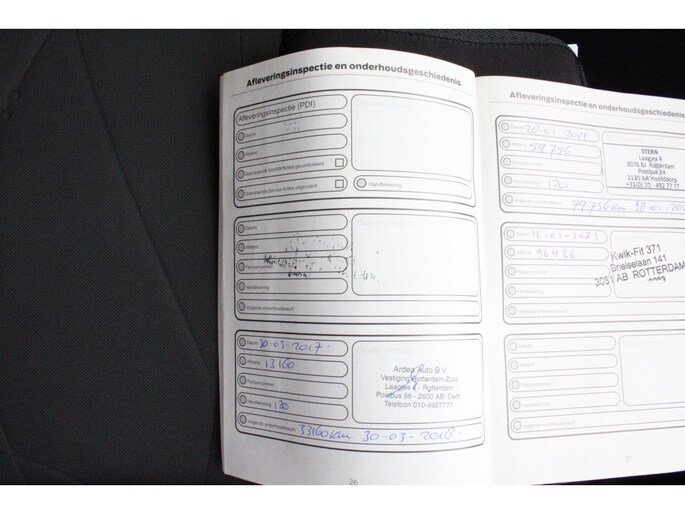 Afleveringsinspectie en onderhoudsgeschiedenis
Afleveringsinspectie (PDI)
Datum
Afstand
Openstaande Service Acties gecontroleerd
Openstaande Service Acties uitgevoerd
Handtekening
Datum
Afstand
Factuurnummer
Handtekening
Volgende onderhoudsbeurt
Datum 30-03-2017
Afstand 13160
Factuurnummer
Handtekening 120
Volgende onderhoudsbeurt 33160km 30-03-2018
Ardea Auto B.V.
Vestiging Rotterdam-Zuid
Laagjes 4 - Rotterdam
Postbus 56 - 2600 AB Delft
Telefoon 010-4927777
26
Afleveringsinspectie en onderhoudsgeschiedenis
Datum 20-01-2021
Afstand 59756
Factuurnummer
Handtekening 120
Volgende onderhoudsbeurt 79756km
STERN
Laagjes 4
3076 BJ Rotterdam
Postbus 24
2130 AA Hoofddorp
+31(0)10 - 492 77 77
Datum
Afstand 96426
Factuurnummer
Handtekening
Volgende onderhoudsbeurt
Kwik-Fit 371
Drielselaan 141
AB ROTTERDAM
Datum
Afstand
Factuurnummer
Handtekening
Volgende onderhoudsbeurt
27